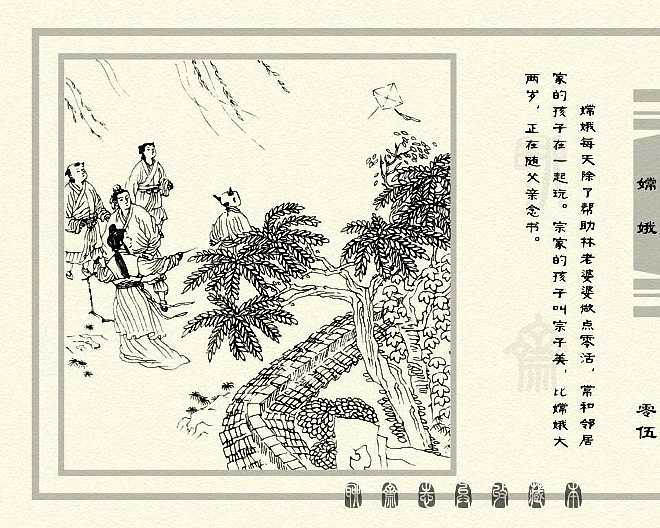 嫦娥每天除了帮助林老婆婆做点零活，常和邻居
家的孩子在一起玩。宗家的孩子叫宗子美，比嫦娥大
两岁，正在随父亲念书。
嫦娥
零伍